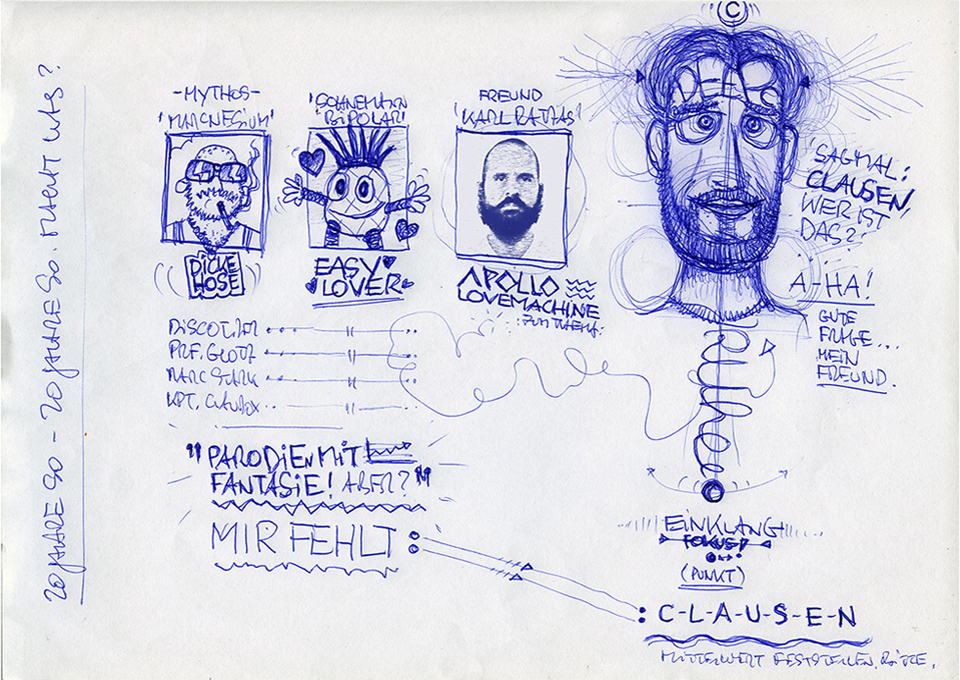 20 JAHRE SO - 20 JAHRE SO. MACHT WAS?
-MYTHOS-
'MAGNESIUM'
DICKE
HOSE
'SOHNEMANN
BIPOLAR'
EASY
LOVER
FREUND
'KARL RATTAS'
APOLLO
LOVEMACHINE
MARC STARK
"PARODIEN MIT
FANTASIE! ABER?"
MIR FEHLT:
©
'SAGMAL:
CLAUSEN,
WER IST
DAS?'
A-HA!
GUTE
FRAGE...
MEIN
FREUND.
EINKLANG
FOKUS!
(PUNKT)
: C-L-A-U-S-E-N
MITTELWERT FESTSTELLEN, BITTE.